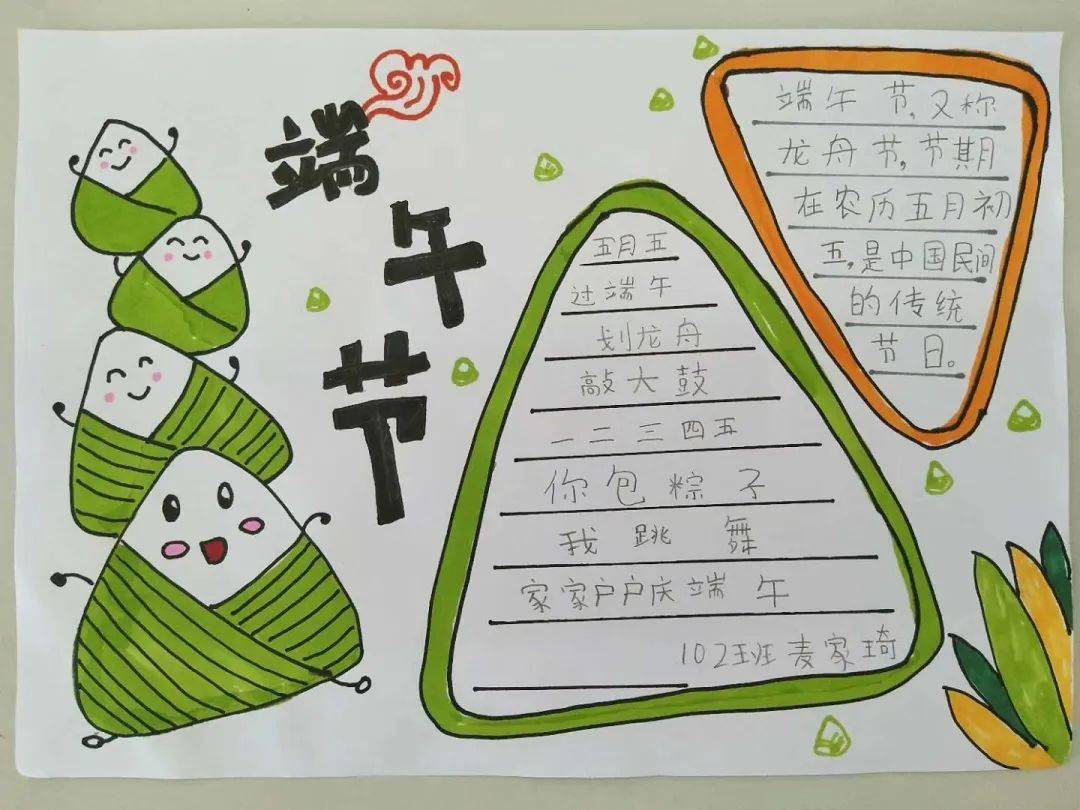 端午节
五月五
过端午
划龙舟
敲大鼓
一二三四五
你包粽子
我跳舞
家家户户庆端午
102班麦家琦
端午节,又称
龙舟节,节期
在农历五月初
五,是中国民间
的传统
节日。